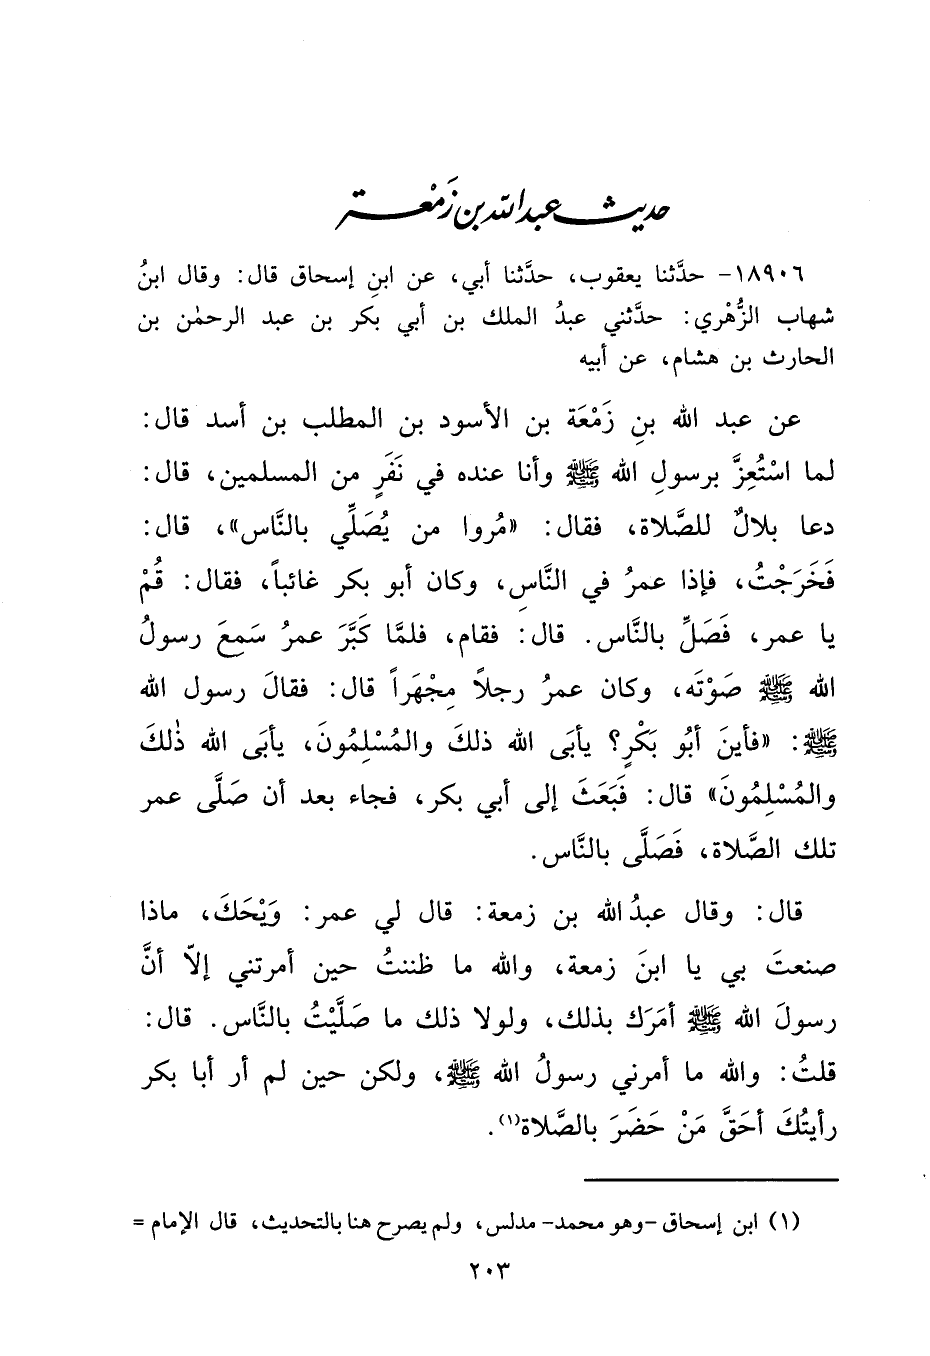 حديث عبد الله بن زَمْعة
١٨٩٠٦- حدَّثنا يعقوب، حدَّثنا أبي، عن ابنِ إسحاق قال: وقال ابنُ
شهاب الزُّهْري: حدَّثني عبدُ الملك بن أبي بكر بن عبد الرحمٰن بن
الحارث بن هشام، عن أبيه
عن عبد الله بنِ زَمْعَة بن الأسود بن المطلب بن أسد قال:
لما اسْتُعِزَّ برسولِ الله ﷺ وأنا عنده في نَفَرٍ من المسلمين، قال:
دعا بلالٌ للصَّلاة، فقال: «مُروا من يُصَلِّي بالنَّاس»، قال:
فَخَرَجْتُ، فإذا عمرُ في النَّاسِ، وكان أبو بكر غائباً، فقال: قُمْ
يا عمر، فَصَلِّ بالنَّاس. قال: فقام، فلمَّا كَبَّرَ عمرُ سَمِعَ رسولُ
الله ﷺ صَوْتَه، وكان عمرُ رجلاً مِجْهَراً قال: فقالَ رسول الله
ﷺ: «فأينَ أبُو بَكْرٍ؟ يأبَى الله ذلكَ والمُسْلِمُونَ، يأبَى الله ذٰلكَ
والمُسْلِمُونَ» قال: فَبَعَثَ إلى أبي بكر، فجاء بعد أن صَلَّى عمر
تلك الصَّلاة، فَصَلَّى بالنَّاس.
قال: وقال عبدُ الله بن زمعة: قال لي عمر: وَيْحَكَ، ماذا
صنعتَ بي يا ابنَ زمعة، والله ما ظننتُ حين أمرتني إلاّ أنَّ
رسولَ الله ﷺ أمَرَك بذلك، ولولا ذلك ما صَلَّيْتُ بالنَّاس. قال:
قلتُ: والله ما أمرني رسولُ الله ﷺ، ولكن حين لم أر أبا بكر
رأيتُكَ أحَقَّ مَنْ حَضَرَ بالصَّلاة(١).
(١) ابن إسحاق -وهو محمد- مدلس، ولم يصرح هنا بالتحديث، قال الإمام =
٢٠٣